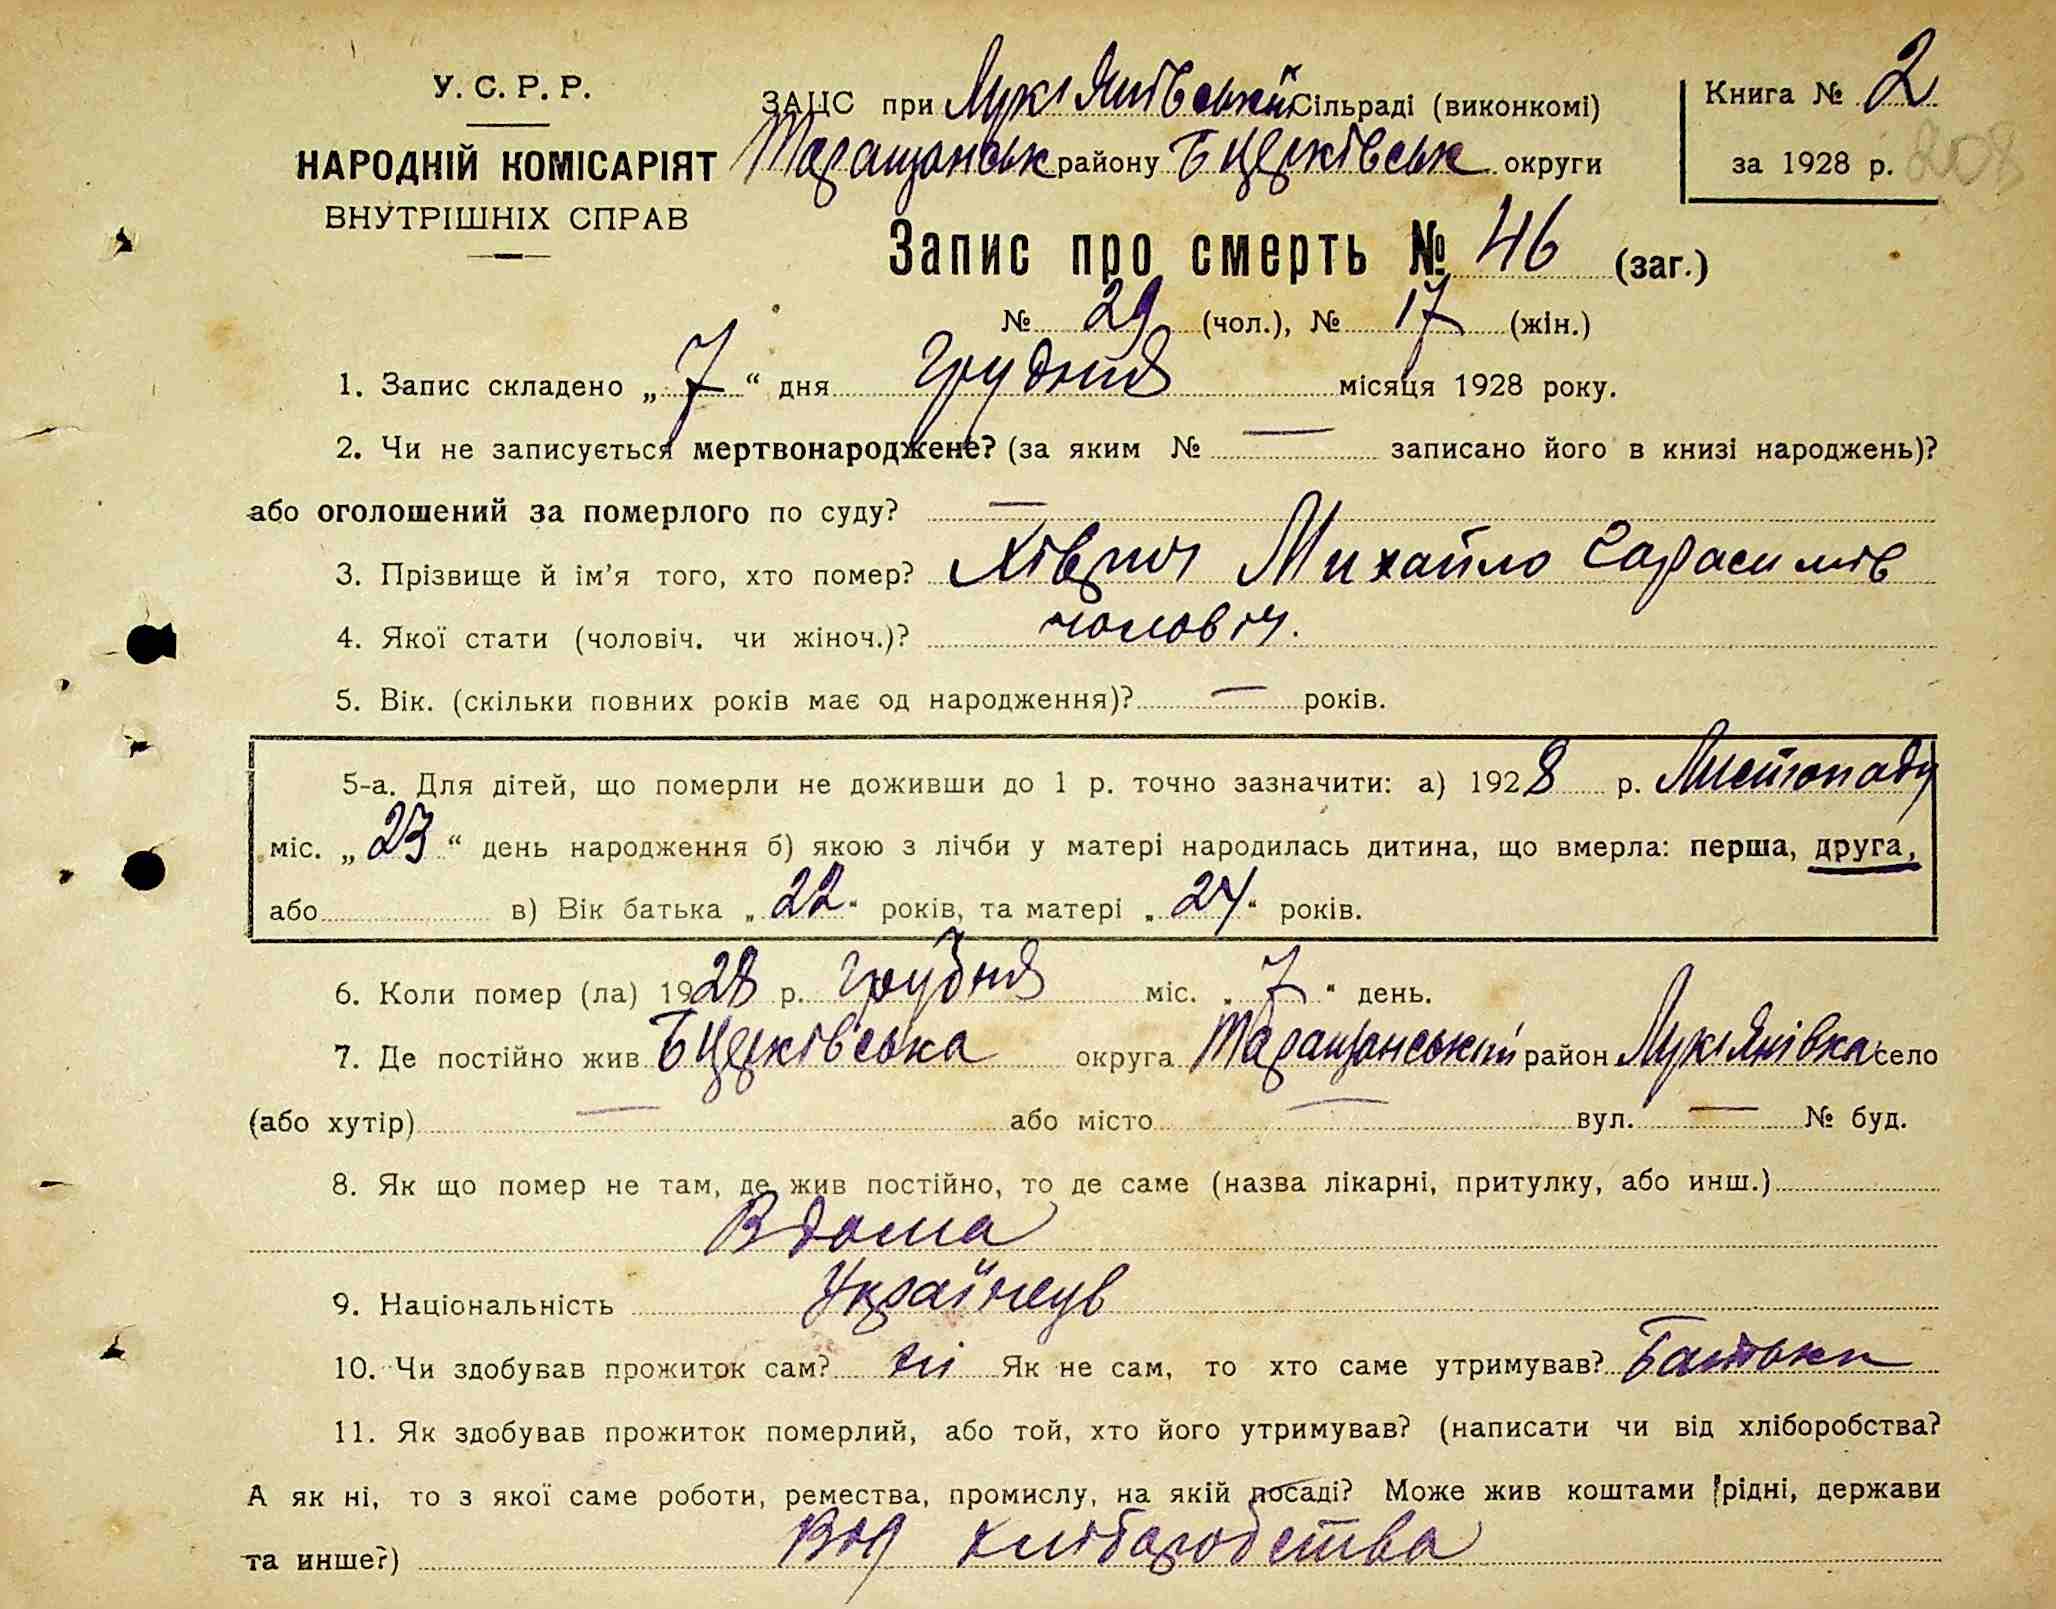 У. С. Р. Р.
НАРОДНІЙ КОМІСАРІЯТ
ВНУТРІШНІХ СПРАВ
ЗАЦС при Лук'янівській Сільраді (виконкомі)
Таращанськ району БЦерківськ округи
Книга № 2
за 1928 р. 208
Запис про смерть № 46 (заг.)
№ 29 (чол.), № 17 (жін.)
1. Запис складено „ 7 “ дня грудня місяця 1928 року.
2. Чи не записується мертвонароджене? (за яким № — записано його в книзі народжень)?
або оголошений за померлого по суду? —
3. Прізвище й ім'я того, хто помер? Михайло Гарасимів
4. Якої стати (чоловіч. чи жіноч.)? чоловіч.
5. Вік. (скільки повних років має од народження)? — років.
5-а. Для дітей, що померли не доживши до 1 р. точно зазначити: а) 1928 р. Листопаду
міс. „ 23 “ день народження б) якою з лічби у матері народилась дитина, що вмерла: перша, друга,
або в) Вік батька „ 22 “ років, та матері „ 24 “ років.
6. Коли помер (ла) 1928 р. грудня міс. „ 7 “ день.
7. Де постійно жив БЦерківська округа Таращанський район Лук'янівка село
(або хутір) — або місто — вул. — № буд.
8. Як що помер не там, де жив постійно, то де саме (назва лікарні, притулку, або инш.)
Вдома
9. Національність Українець
10. Чи здобував прожиток сам? ні Як не сам, то хто саме утримував? Батьки
11. Як здобував прожиток померлий, або той, хто його утримував? (написати чи від хліборобства?
А як ні, то з якої саме роботи, ремества, промислу, на якій посаді? Може жив коштами рідні, держави
та инше?) Від хліборобства